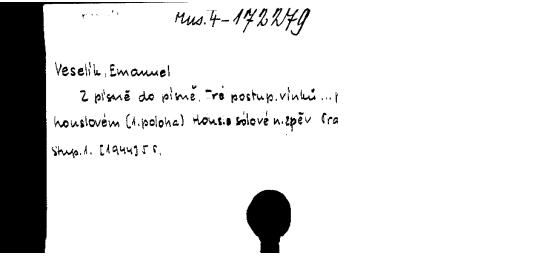 Mus.4-172279
Veselík, Emanuel
Z písně do písně. postup. ...
houslovém (1.poloha) sólové n.zpěv
Stup.1. [1944] 5 s.